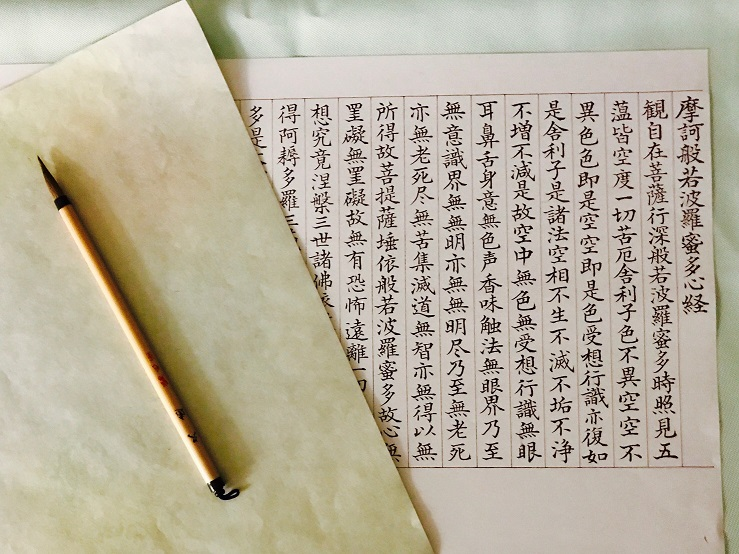 摩訶般若波羅蜜多心経
観自在菩薩行深般若波羅蜜多時照見五
薀皆空度一切苦厄舎利子色不異空空不
異色色即是空空即是色受想行識亦復如
是舎利子是諸法空相不生不滅不垢不浄
不増不減是故空中無色無受想行識無眼
耳鼻舌身意無色声香味触法無眼界乃至
無意識界無無明亦無無明尽乃至無老死
亦無老死尽無苦集滅道無智亦無得以無
所得故菩提薩埵依般若波羅蜜多故心無
罣礙無罣礙故無有恐怖遠離一切
想究竟涅槃三世諸佛依
得阿耨多羅三
多是